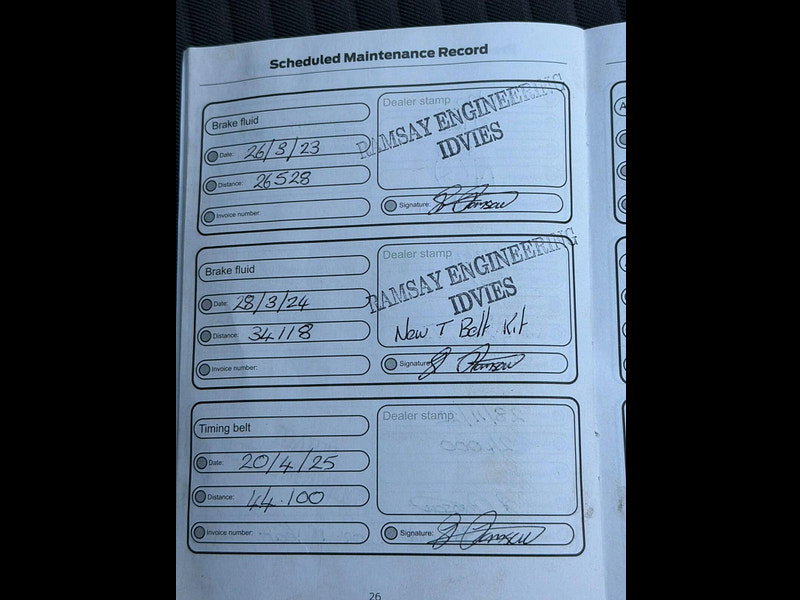 Scheduled Maintenance Record
Brake fluid
Date: 26/3/23
Distance: 26528
Invoice number:
Dealer stamp
RAMSAY ENGINEERING
IDVIES
Signature:
Brake fluid
Date: 28/3/24
Distance: 34118
Invoice number:
Dealer stamp
RAMSAY ENGINEERING
IDVIES
New T Belt Kit
Signature:
Timing belt
Date: 20/4/25
Distance: 44.100
Invoice number:
Dealer stamp
Signature:
26